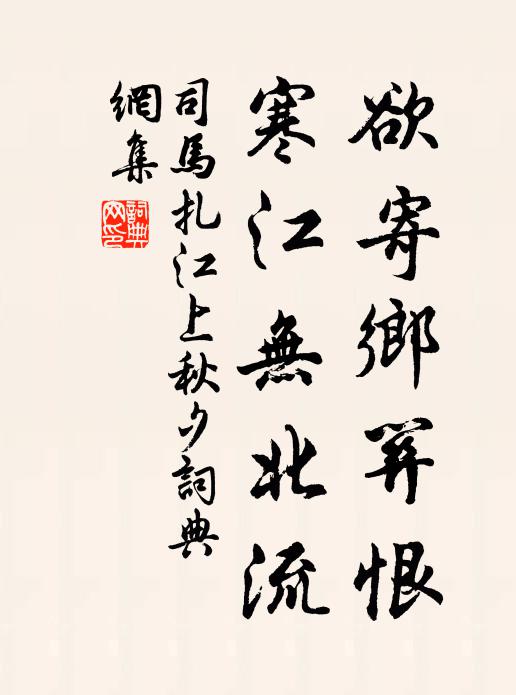 欲寄鄉關恨
寒江無北流
司馬扎江上秋夕詞典
網集
詞典
网印